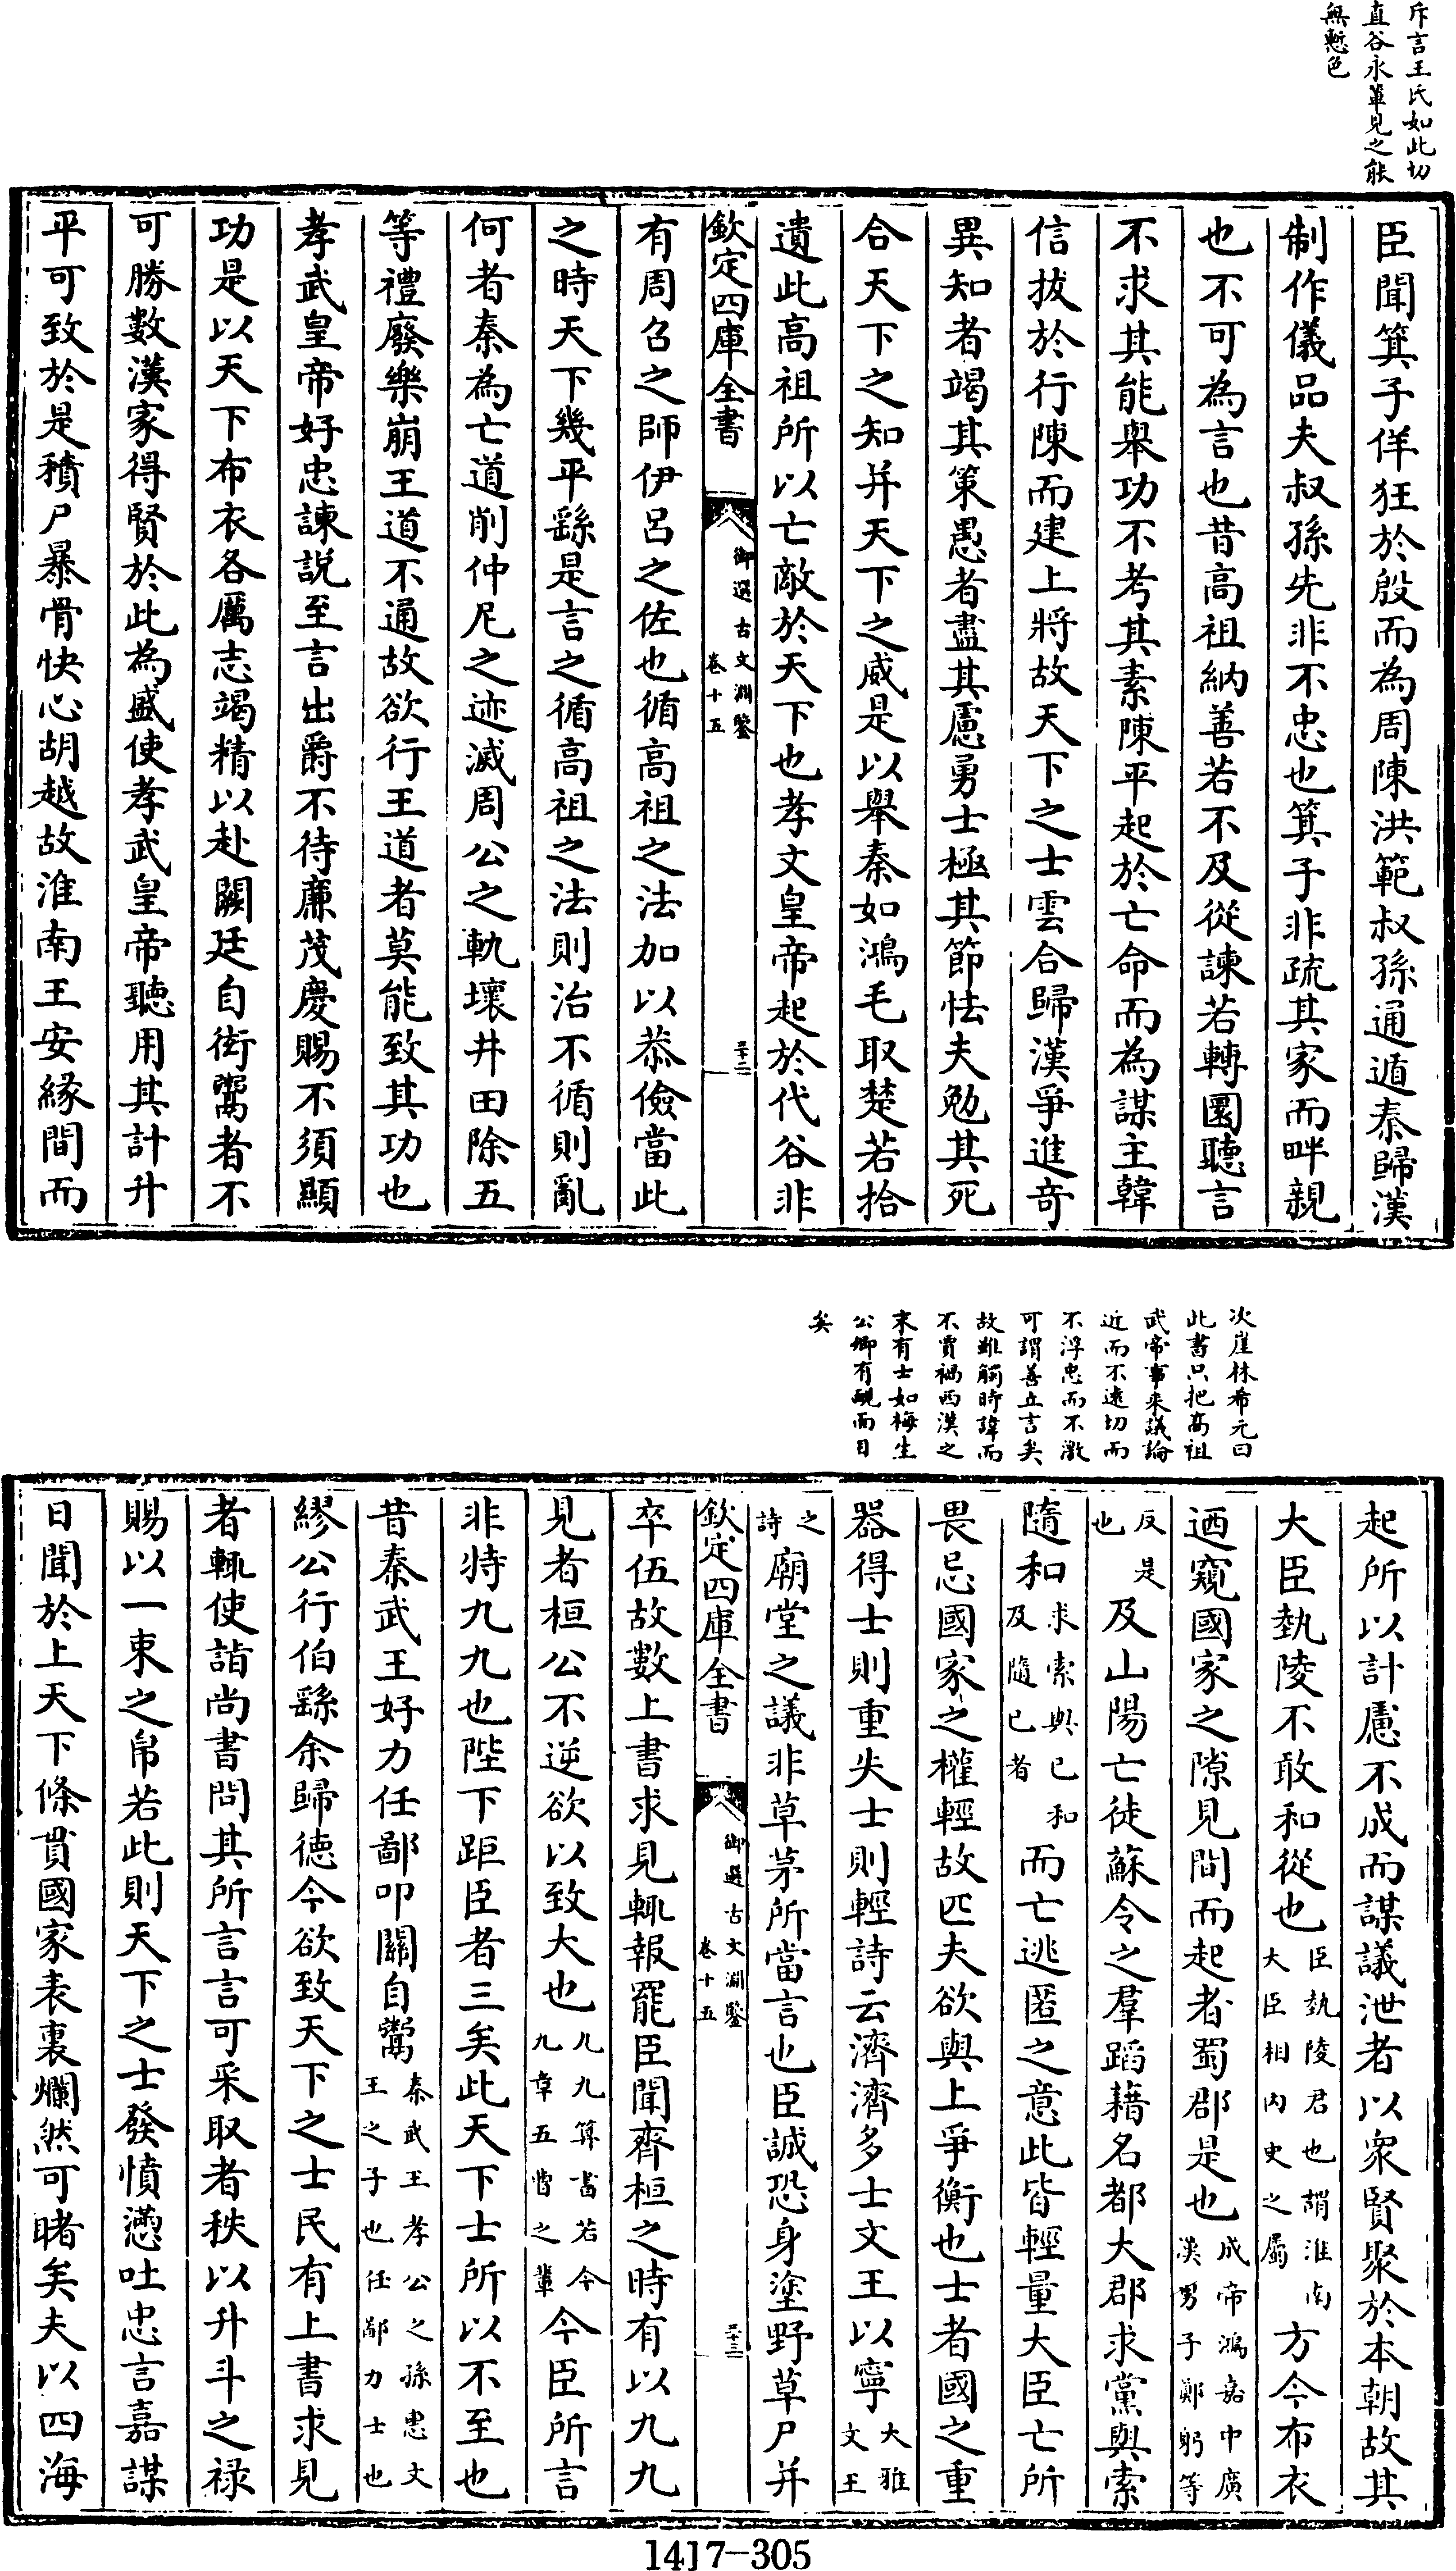 斥言王氏如此切
直谷永輩見之能
無慙色
臣聞箕子佯狂於殷而為周陳洪範叔孫通遁秦歸漢
制作儀品夫叔孫先非不忠也箕子非疏其家而畔親
也不可為言也昔高祖納善若不及從諫若轉圜聽言
不求其能舉功不考其素陳平起於亡命而為謀主韓
信拔於行陳而建上將故天下之士雲合歸漢爭進竒
異知者竭其策愚者盡其慮勇士極其節怯夫勉其死
合天下之知并天下之威是以舉秦如鴻毛取楚若拾
遺此高祖所以亡敵於天下也孝文皇帝起於代谷非
欽定四庫全書
御選古文淵鑒
卷十五
三十二
有周召之師伊呂之佐也循高祖之法加以恭儉當此
之時天下幾平繇是言之循高祖之法則治不循則亂
何者秦為亡道削仲尼之迹滅周公之軌壞井田除五
等禮廢樂崩王道不通故欲行王道者莫能致其功也
孝武皇帝好忠諫說至言出爵不待廉茂慶賜不須顯
功是以天下布衣各厲志竭精以赴闕廷自衒鬻者不
可勝數漢家得賢於此為盛使孝武皇帝聽用其計升
平可致於是積尸暴骨快心胡越故淮南王安縁間而
次崖林希元曰
此書只把髙祖
武帝事来議論
近而不逺切而
不浮忠而不激
可謂善立言矣
故雖觸時諱而
不賈禍西漢之
末有士如梅生
公卿有靦面目
矣
起所以計慮不成而謀議泄者以衆賢聚於本朝故其
大臣埶陵不敢和從也臣埶陵君也謂淮南大臣相内史之屬方今布衣
迺窺國家之隙見間而起者蜀郡是也成帝鴻嘉中廣漢男子鄭躬等
反是也及山陽亡徒蘇令之羣蹈藉名都大郡求黨與索
隨和求索與已和及隨已者而亡逃匿之意此皆輕量大臣亡所
畏忌國家之權輕故匹夫欲與上爭衡也士者國之重
器得士則重失士則輕詩云濟濟多士文王以寧大雅文王
之詩廟堂之議非草茅所當言也臣誠恐身塗野草尸并
欽定四庫全書
御選古文淵鑒
卷十五
三十三
卒伍故數上書求見輒報罷臣聞齊桓之時有以九九
見者桓公不逆欲以致大也九九算書若今九章五曹之輩今臣所言
非特九九也陛下距臣者三矣此天下士所以不至也
昔秦武王好力任鄙叩關自鬻秦武王孝公之孫惠文王之子也任鄙力士也
繆公行伯繇余歸德今欲致天下之士民有上書求見
者輒使詣尚書問其所言言可采取者秩以升斗之禄
賜以一束之帛若此則天下之士發憤懣吐忠言嘉謀
日聞於上天下條貫國家表裏爛然可睹矣夫以四海
1417-305